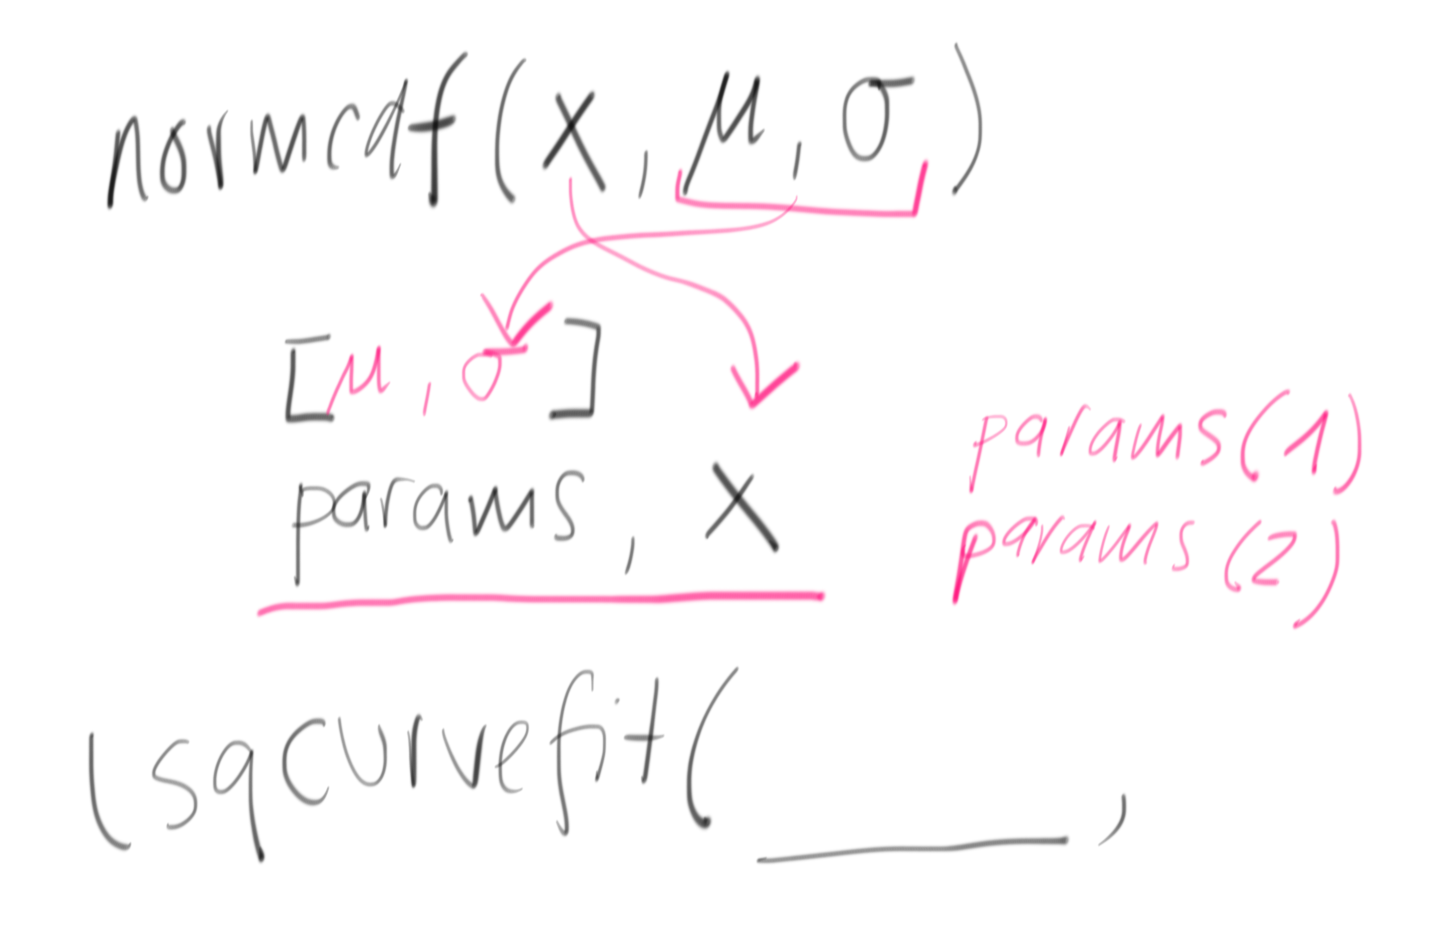 normcdf(x, μ, σ)
[μ, σ]
params, x
params(1)
params(2)
lsqcurvefit(______,